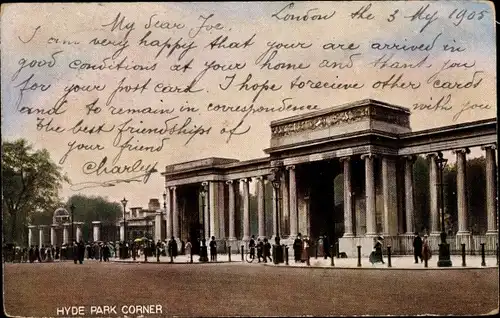 My dear Joe, London the 3 My 1905
I am very happy that your are arrived in
good conditions at your home and thank you
for your post card. I hope to receive other cards
and to remain in correspondence with you
The best friendships of
your friend
Charley
HYDE PARK CORNER